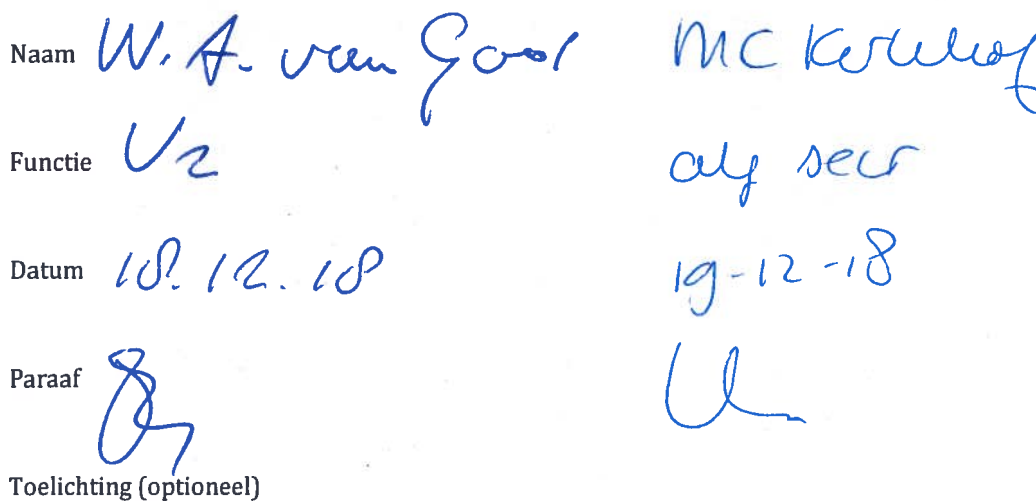 Naam W. A. van Gool MC Kerkhof
Functie Vz alg secr
Datum 18.12.18 19-12-18
Paraaf
Toelichting (optioneel)